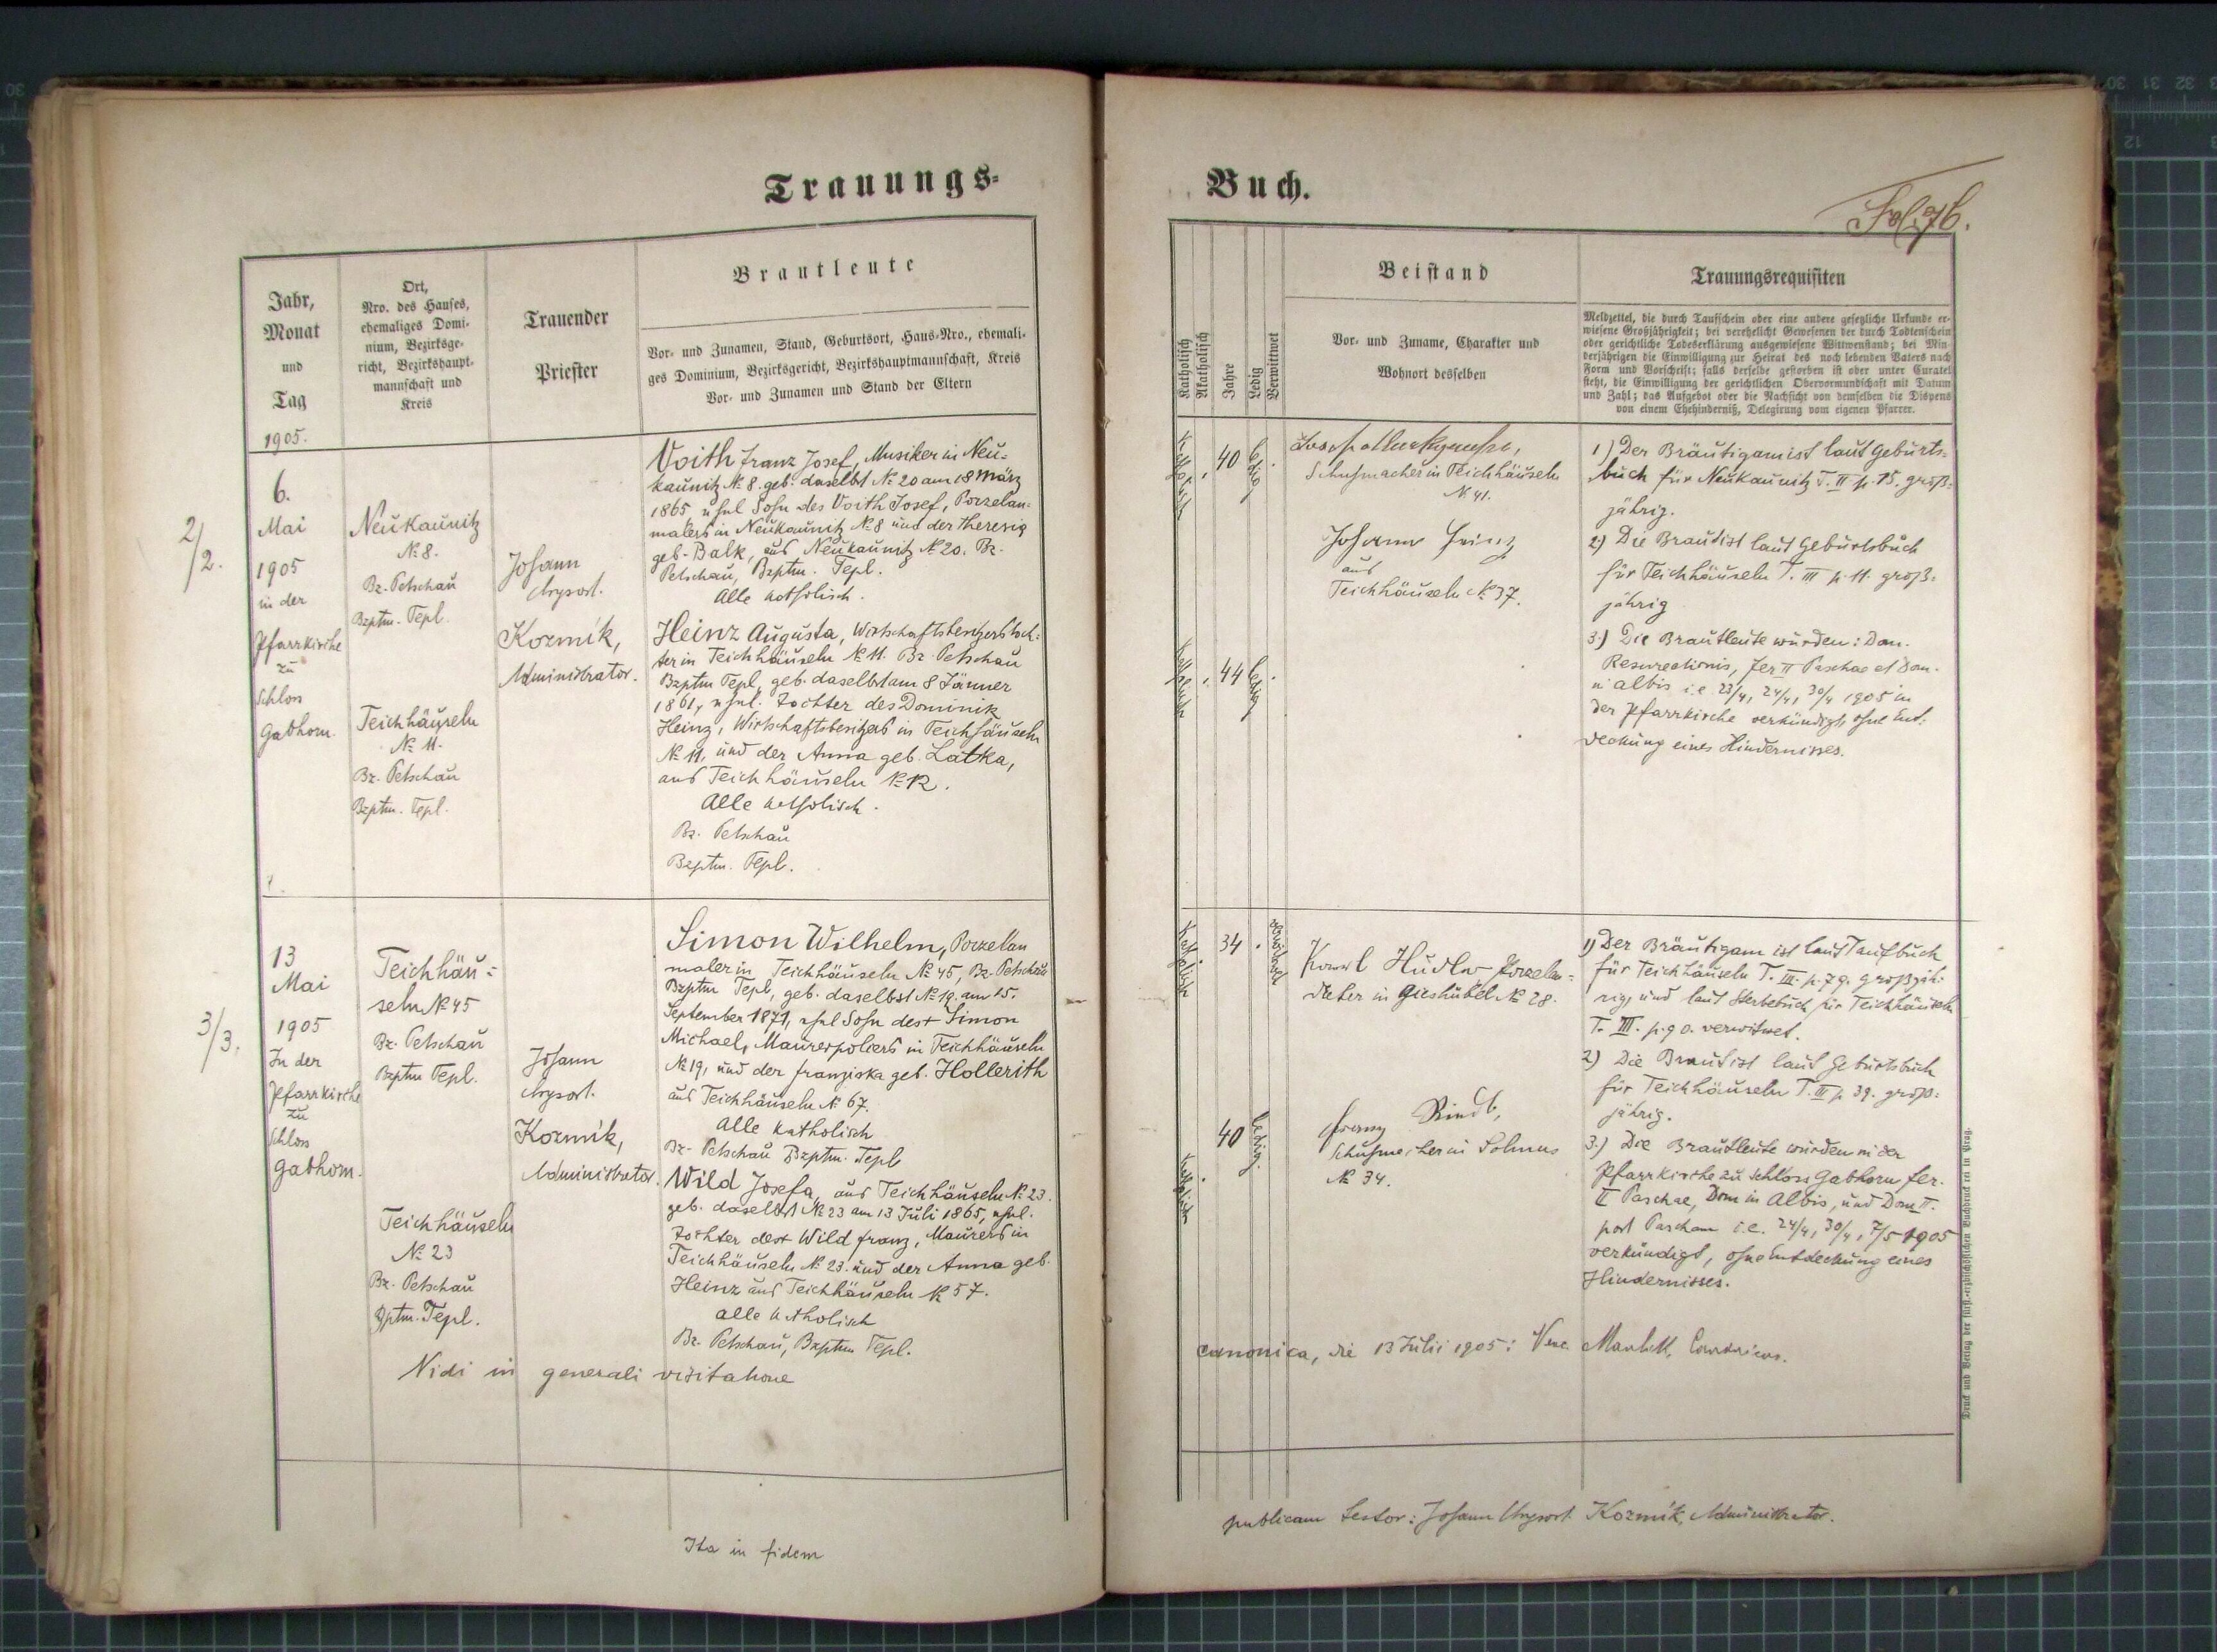 Trauungs-
Buch.
Fol. 76.
Jahr,
Monat
und
Tag
1905.
Ort,
Nro. des Hauses,
ehemaliges Domi-
nium, Bezirksge-
richt, Bezirkshaupt-
mannschaft und
Kreis
Trauender
Priester
Brautleute
Vor- und Zunamen, Stand, Geburtsort, Haus-Nro., ehemali-
ges Dominium, Bezirksgericht, Bezirkshauptmannschaft, Kreis
Vor- und Zunamen und Stand der Eltern
Katholisch
Akatholisch
Jahre
Ledig
Verwittwet
Beistand
Vor- und Zuname, Charakter und
Wohnort desselben
Trauungsrequisiten
Meldzettel, die durch Taufschein oder eine andere gesetzliche Urkunde er-
wiesene Großjährigkeit; bei verehelicht Gewesenen der durch Todtenschein
oder gerichtliche Todeserklärung ausgewiesene Wittwenstand; bei Min-
derjährigen die Einwilligung zur Heirat des noch lebenden Vaters nach
Form und Vorschrift; falls derselbe gestorben ist oder unter Curatel
steht, die Einwilligung der gerichtlichen Obervormundschaft mit Datum
und Zahl; das Aufgebot oder die Nachsicht von demselben die Dispens
von einem Ehehinderniß, Delegirung vom eigenen Pfarrer.
2/2.
6.
Mai
1905
in der
Pfarrkirche
zu
Schloss
Gabhorn.
Neukaunitz
№ 8.
Bz. Petschau
Bzptm. Tepl.
Teichhäuseln
№ 11.
Bz. Petschau
Bzptm. Tepl.
Johann
Chrysost.
Kozmík,
Administrator.
Voith Franz Josef, Musiker in Neu-
kaunitz № 8. geb. daselbst № 20 am 18 März
1865 ehel Sohn des Voith Josef, Porzelan-
malers in Neukaunitz № 8 und der Theresia
geb. Balk, aus Neukaunitz № 20. Bz.
Petschau, Bzptm. Tepl.
Alle katholisch.
Heinz Augusta, Wirtschaftsbesitzerstoch-
ter in Teichhäuseln № 11. Bz. Petschau
Bzptm Tepl, geb. daselbst am 8 Jänner
1861, ehel. Tochter des Dominik
Heinz, Wirtschaftsbesitzers in Teichhäuseln
№ 11, und der Anna geb. Latka,
aus Teichhäuseln № 12.
Alle katholisch.
Bz. Petschau
Bzptm. Tepl.
Katholisch
40
ledig
Josef
Schuhmacher in Teichhäuseln
№ 41.
Johann Heinz
aus
Teichhäuseln № 37.
Katholisch
44
ledig
1) Der Bräutigam ist laut Geburts-
buch für Neukaunitz T. II p. 15. groß-
jährig.
2) Die Braut ist laut Geburtsbuch
für Teichhäuseln T. III p. 11. groß-
jährig
3.) Die Brautleute wurden: Dom.
Resurectionis, fer II Paschae et Dom.
in albis i.e. 23/4, 24/4, 30/4 1905 in
der Pfarrkirche verkündigt, ohne Ent-
deckung eines Hindernisses.
3/3.
13
Mai
1905
In der
Pfarrkirche
zu
Schloss
Gabhorn.
Teichhäu-
seln № 45
Bz. Petschau
Bzptm Tepl.
Teichhäuseln
№ 23
Bz. Petschau
Bzptm. Tepl.
Johann
Chrysost.
Kozmík,
Administrator.
Simon Wilhelm, Porzelan
maler in Teichhäuseln № 45, Bz. Petschau
Bzptm Tepl, geb. daselbst № 19. am 15.
September 1871, ehel Sohn des + Simon
Michael, Maurerpoliers in Teichhäuseln
№ 19, und der Franziska geb. Hollerith
aus Teichhäuseln № 67.
Alle katholisch
Bz. Petschau Bzptm. Tepl
Wild Josefa, aus Teichhäuseln № 23.
geb. daselbst № 23 am 13 Juli 1865, ehel.
Tochter des + Wild Franz, Maurers in
Teichhäuseln № 23. und der Anna geb.
Heinz aus Teichhäuseln № 57.
alle katholisch
Bz. Petschau, Bzptm Tepl.
Katholisch
34
verwitwet
Karl Hudler Porzelan-
dreher in Gieshübel № 28.
Katholisch
40
ledig.
Franz Riedl,
Schuhmacher in Solmus
№ 34.
1) Der Bräutigam ist laut Taufbuch
für Teichhäuseln T. III. p. 79. großjäh-
rig, und laut Sterbebuch für Teichhäuseln
T. III. p. 90. verwitwet.
2) Die Braut ist laut Geburtsbuch
für Teichhäuseln T. III p. 39. groß-
jährig.
3.) Die Brautleute wurden in der
Pfarrkirche zu Schloss Gabhorn fer.
II Paschae, Dom in Albis, und Dom II.
post Pascham i.e. 24/4, 30/4, 7/5 1905
verkündigt, ohne Entdeckung eines
Hindernisses.
Vidi in generali visitatione canonica, die 13 Julii 1905:
Ita in fidem publicam testor: Johann Chrysost. Kozmík, Administrator.
Druck und Verlag der fürst.-erzbischöflichen Buchdruckerei in Prag.